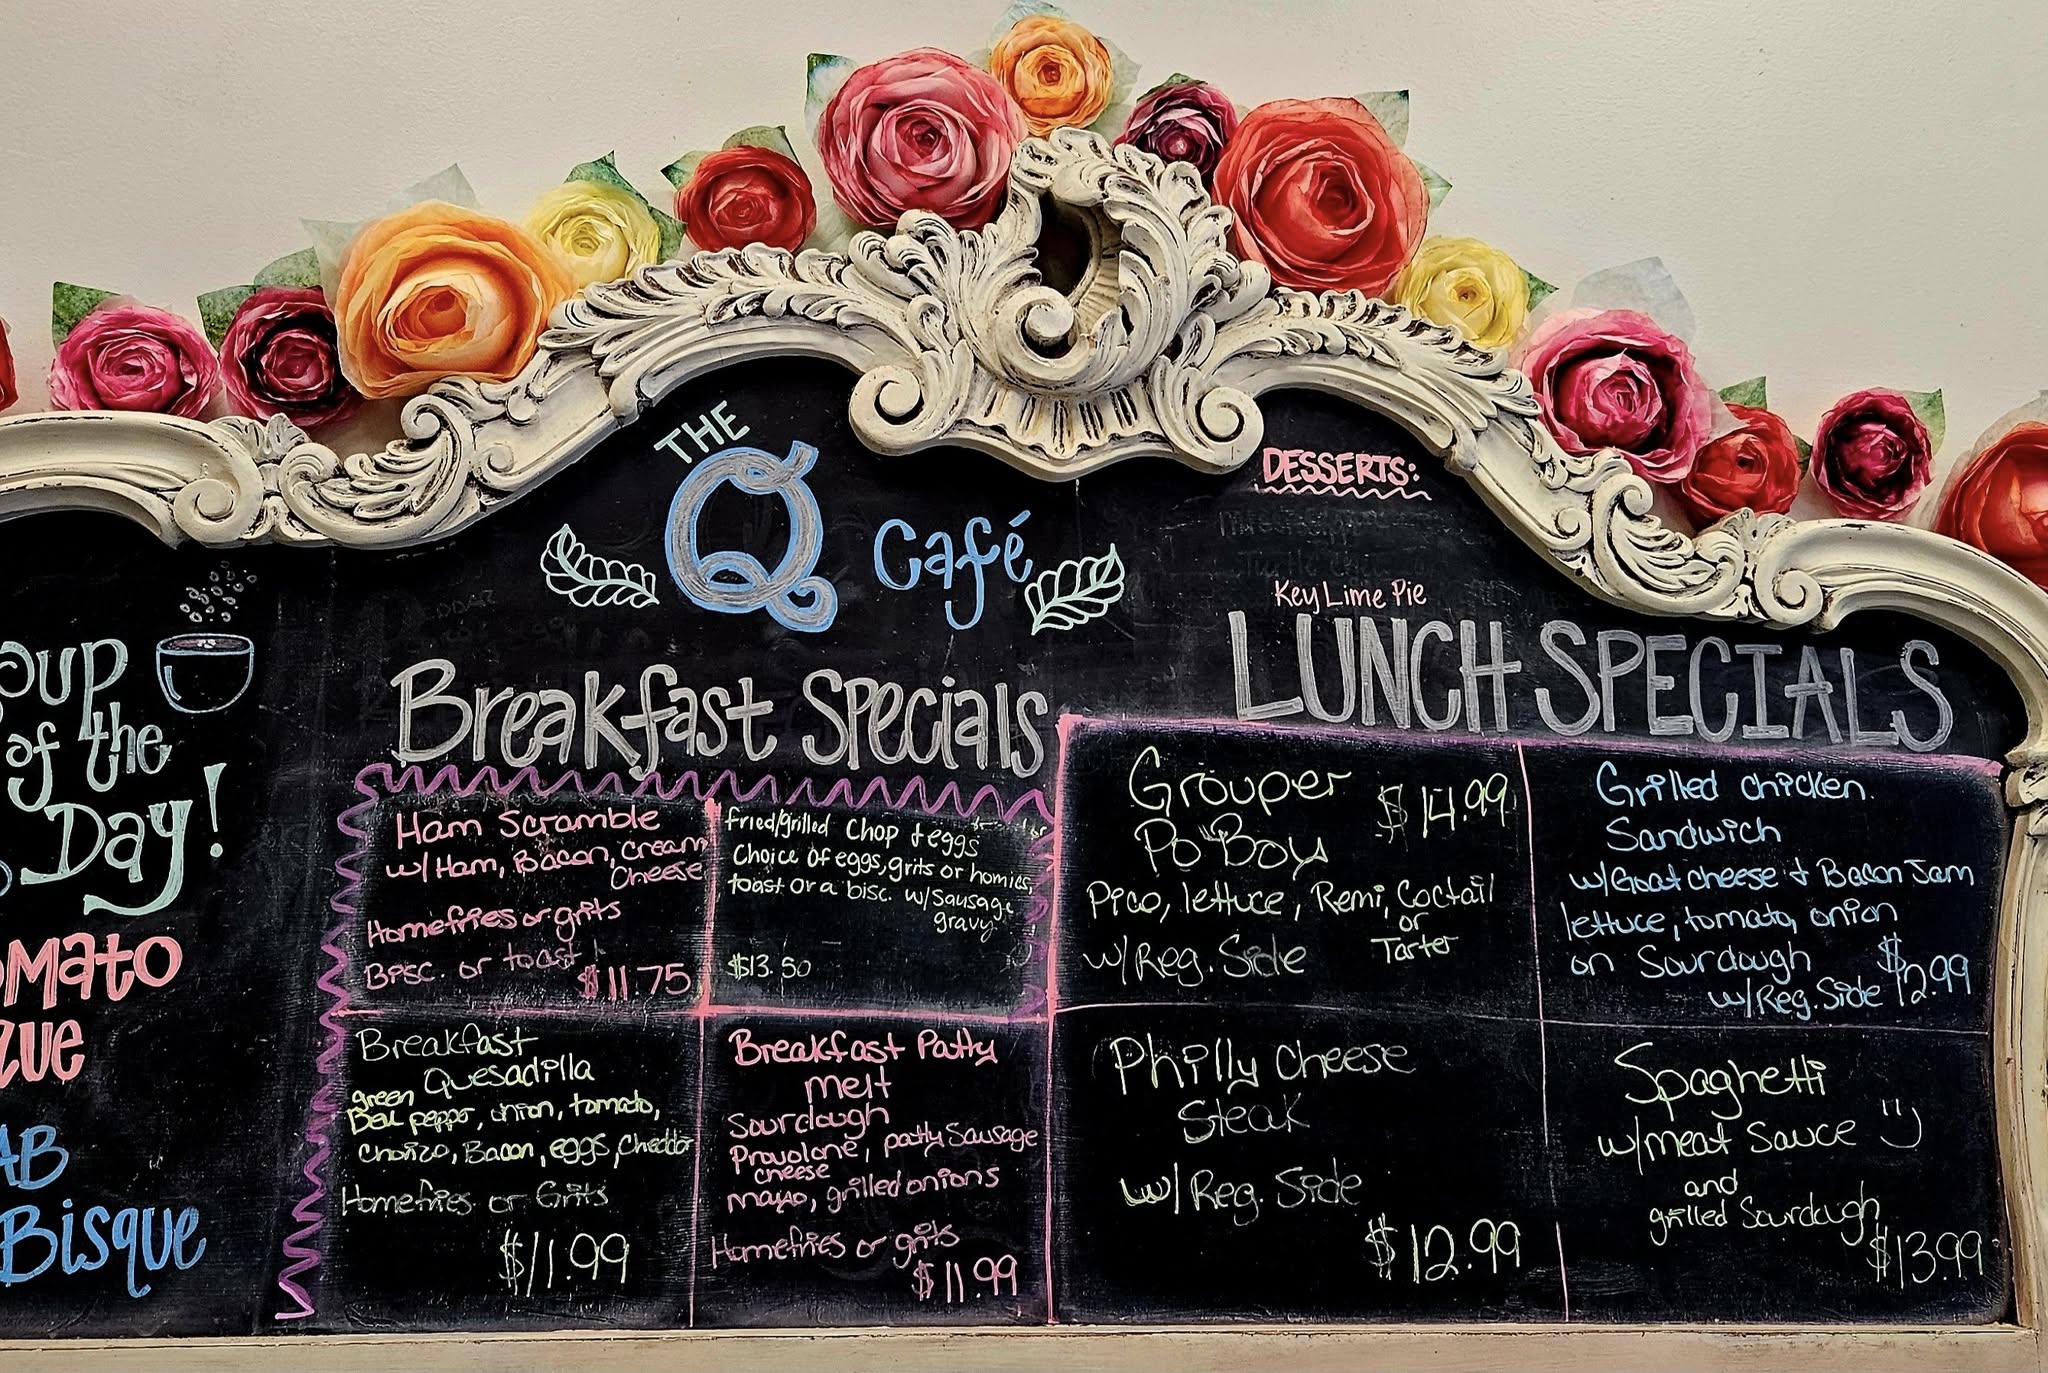 THE
Q
Café
DESSERTS:
Key Lime Pie
oup
of the
Day!
omato
que
AB
Bisque
Breakfast Specials
Ham Scramble
w/ Ham, Bacon, Cream
Cheese
Homefries or grits
Bisc. or toast
$11.75
fried/grilled Chop + eggs
Choice of eggs, grits or homies,
toast or a bisc. w/ Sausage
gravy
$13.50
Breakfast
Quesadilla
green
Bell pepper, onion, tomato,
chorizo, Bacon, eggs, cheddar
Homefries or Grits
$11.99
Breakfast Patty
melt
Sourdough
Provolone, patty Sausage
cheese
mayo, grilled onions
Homefries or grits
$11.99
LUNCH SPECIALS
Grouper
Po Boy
$14.99
Pico, lettuce, Remi, Coctail
or
Tarter
w/ Reg. Side
Grilled chicken
Sandwich
w/Goat cheese + Bacon Jam
lettuce, tomato, onion
on Sourdough
w/ Reg. Side $12.99
Philly cheese
Steak
w/ Reg. Side
$12.99
Spaghetti
w/meat Sauce
and
grilled Sourdough
$13.99